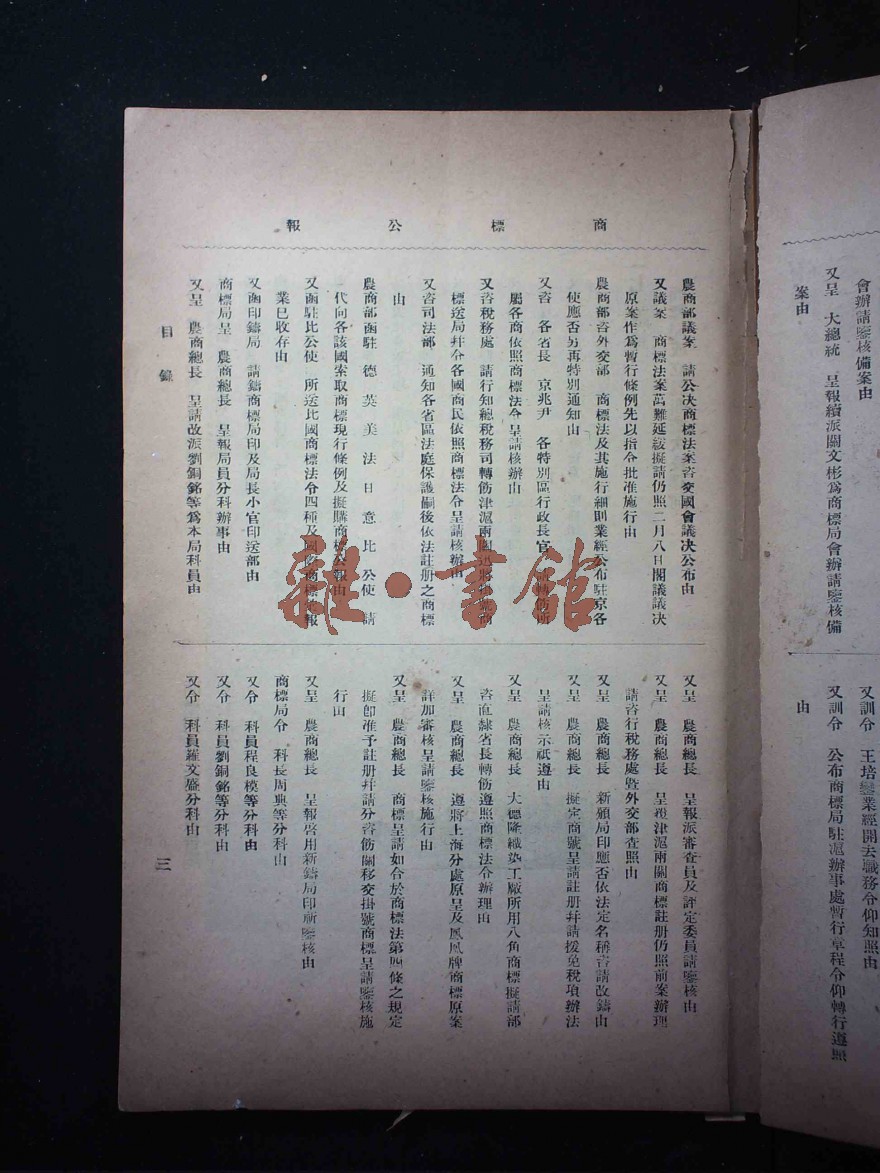 會辦請鑒核備案由
又呈 大總統 呈報續派關文彬爲商標局會辦請鑒核備
案由
又訓令 王培鑾業經開去職務令仰知照由
又訓令 公布商標局駐滬辦事處暫行章程令仰轉行遵照
由
商標公報
農商部議案 請公決商標法案咨交國會議決公布由
又議案 商標法案萬難延緩擬請仍照二月八日閣議議決
原案作爲暫行條例先以指令批准施行由
農商部咨外交部 商標法及其施行細則業經公布駐京各
使應否另再特別通知由
又咨 各省長 京兆尹 各特別區行政長官 轉飭所
屬各商依照商標法令呈請核辦由
又咨稅務處 請行知總稅務司轉飭津滬兩關迅將掛號商
標送局幷令各國商民依照商標法令呈請核辦由
又咨司法部 通知各省區法庭保護嗣後依法註册之商標
由
農商部函駐 德 英 美 法 日 意 比 公使 請
代向各該國索取商標現行條例及擬購商標公報由
又函駐比公使 所送比國商標法令四種及國際商標 報
業已收存由
又函印鑄局 請鑄商標局印及局長小官印送部由
商標局呈 農商總長 呈報局員分科辦事由
又呈 農商總長 呈請改派劉銅銘等爲本局科員由
又呈 農商總長 呈報派審查員及評定委員請鑒核由
又呈 農商總長 呈復津滬兩關商標註册仍照前案辦理
請咨行稅務處暨外交部查照由
又呈 農商總長 新頒局印應否依法定名稱咨請改鑄由
又呈 農商總長 擬定商號呈請註册幷請援免稅項辦法
呈請核示祇遵由
又呈 農商總長 大德隆織染工廠所用八角商標擬請部
咨直隸省長轉飭遵照商標法令辦理由
又呈 農商總長 遵將上海分處原呈及鳳凰牌商標原案
詳加審核呈請鑒核施行由
又呈 農商總長 商標呈請如合於商標法第四條之規定
擬卽准予註册幷請分咨飭關移交掛號商標呈請鑒核施
行由
又呈 農商總長 呈報啓用新鑄局印祈鑒核由
商標局令 科長周典等分科由
又令 科員程良模等分科由
又令 科員劉銅銘等分科由
又令 科員羅文盛分科由
目錄
三
雜·書館